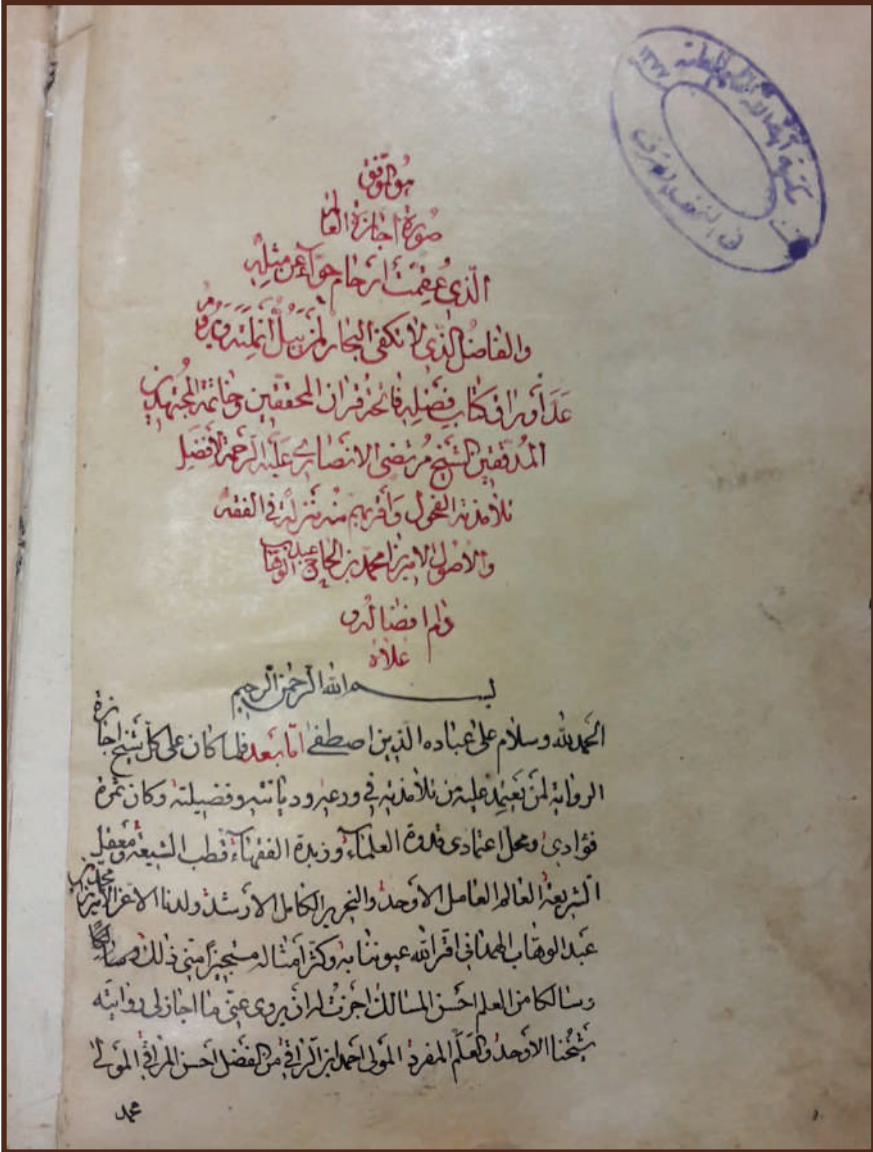 هو الموفق
صورة اجازة العالم
الذي عقمت ارحام حواء عن مثله
والفاضل الذي لا تكفي البحار لمن يبل انملته ويروم
عد اوراق كتاب فضله فاتحة قران المحققين وخاتمة المجتهدين
المدققين الشيخ مرتضى الانصاري عليه الرحمة لافضل
تلامذته الفحول واقربهم منه منزلة في الفقه
والاصول الاميرزا محمد بن الحاج عبد الوهاب
دام افضاله
علاه
بسم الله الرحمن الرحيم
الحمد لله وسلام على عباده الذين اصطفى اما بعد فلما كان على كل شيخ اجازة
الرواية لمن يعتمد عليه من تلامذته في ورعه وديانته وفضيلته وكان ثمرة
فؤادي ومحل اعتمادي قدوة العلماء وزبدة الفقهاء قطب الشيعة ومعقل
الشريعة العالم العامل الاوحد والنحرير الكامل الارشد ولدنا الاعز الاميرزا محمد بن
عبد الوهاب الهمداني اقر الله عيوننا به وكثر امثاله مستجيزا مني ذلك وسالكا
وسالكا من العلم احسن المسالك اجزت له ان يروي عني ما اجاز لي روايته
شيخنا الاوحد والعلم المفرد المولى احمد النراقي من الفضل احسن المراقي المولى
محمد
مكتبة
العامة
١٣٧٧
في النجف الاشرف